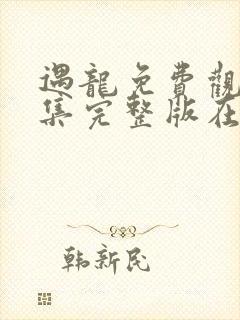 遇龍免費觀
集完整版在
韩新民